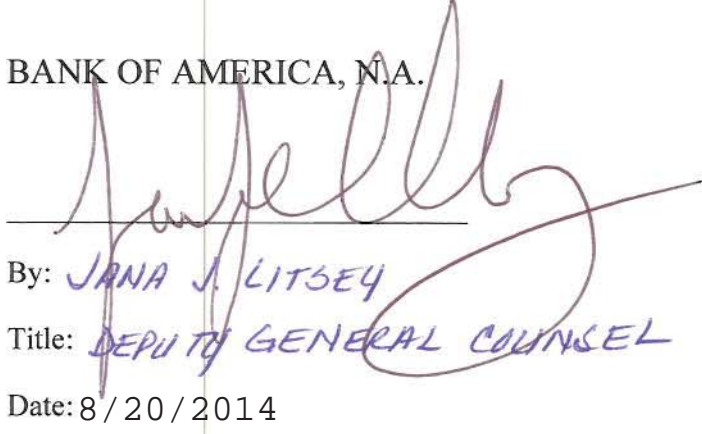 BANK OF AMERICA, N.A.
By: JANA J. LITSEY
Title: DEPUTY GENERAL COUNSEL
Date: 8/20/2014